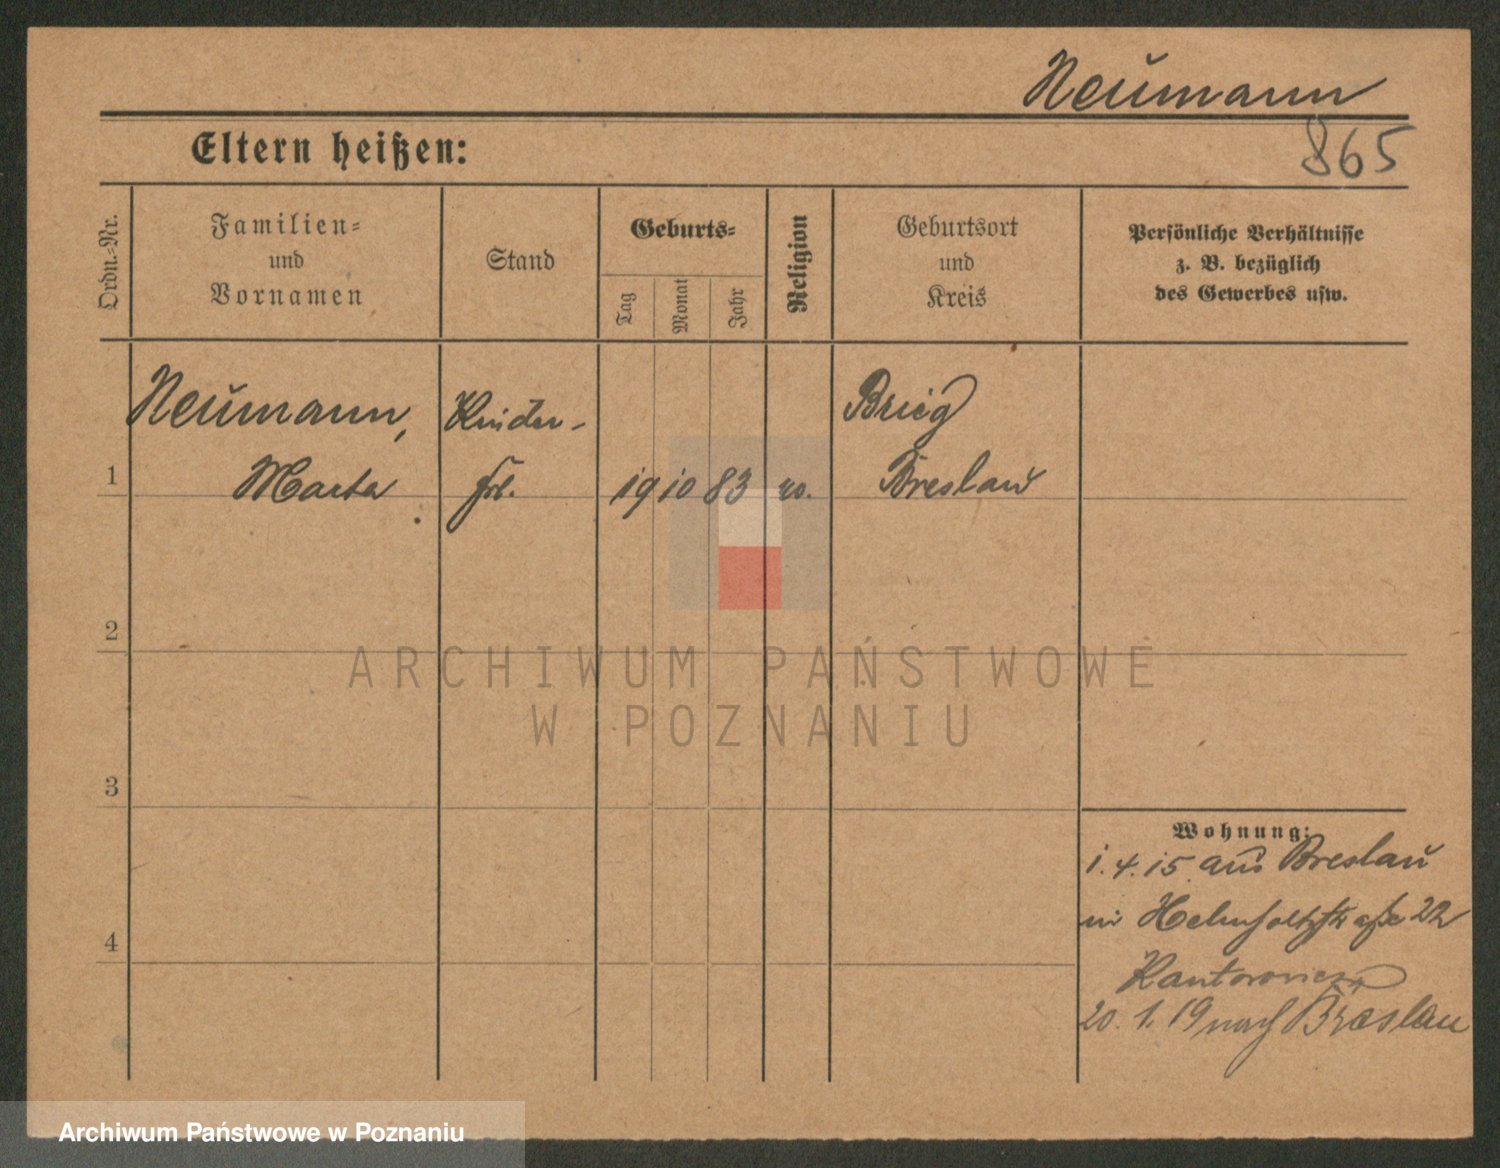 Neumann
865
Eltern heißen:
Ordn.-Nr.
Familien-
und
Vornamen
Stand
Geburts-
Tag
Monat
Jahr
Religion
Geburtsort
und
Kreis
Persönliche Verhältnisse
z. B. bezüglich
des Gewerbes usw.
Neumann, Kinder- Brieg
1 Marta frl. 19 10 83 Breslau
2
3
4
Wohnung:
1.4.15. aus Breslau
in Helmholtzstraße 22
Kantorowicz
20.1.19 nach Breslau
ARCHIWUM PAŃSTWOWE
W POZNANIU
Archiwum Państwowe w Poznaniu